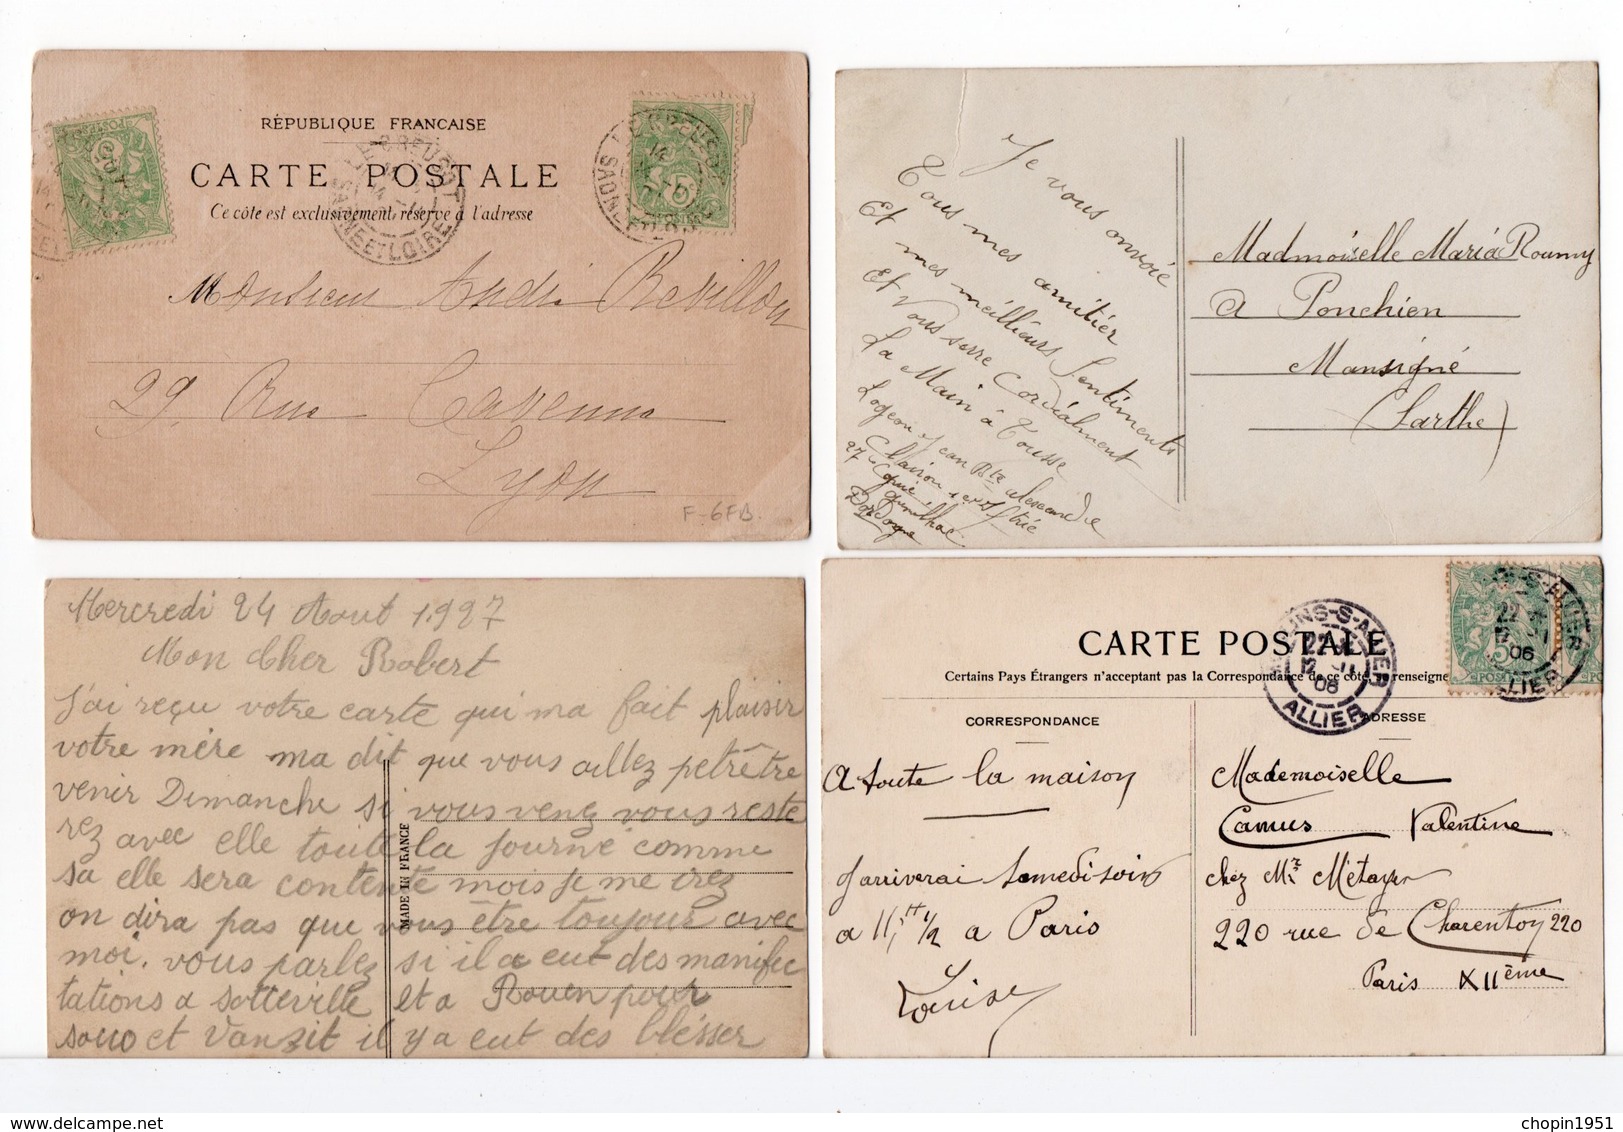 RÉPUBLIQUE FRANCAISE
CARTE POSTALE
Ce côté est exclusivement réservé à l'adresse
SAONE ET LOIRE
Monsieur André Revillon
29 Rue Cavenne
Lyon
F-6FB.
Je vous envoie
Tous mes amitiér
Et mes méilléurs Sentiments
Et Vous serre Cordialment
La Main à Tousse
Logeon Jean Bte alexandre
Clairon
27e Cqnie
Dordogne
Madmoiselle Maria Roumy
a Ponchien
Mansigné
(Sarthe)
Mercredi 24 Aout 1.927
Mon Cher Robert
J'ai reçu votre carte qui ma fait plaisir
votre mére ma dit que vous allez petrêtre
venir Dimanche si vous venez vous reste
rez avec elle toute la journé comme
sa elle sera contente mois je me irez
on dira pas que vous être toujour avec
moi. vous parlez si il a eut des manifec
tations a sotteville et a Rouen pour
saco et Vanzit il y a eut des bléssér
MADE IN FRANCE
CARTE POSTALE
Certains Pays Étrangers n'acceptent pas la Correspondance de ce côté, se renseigne
CORRESPONDANCE
ADRESSE
ALLIER
06
5
POSTES
A toute la maison
J'arriverai Samedi soir
a 11,H 1/2 a Paris
Louise
Mademoiselle
Camus Valentine
chez Mr Métayer
220 rue de Charenton 220
Paris XIIème
chopin1951